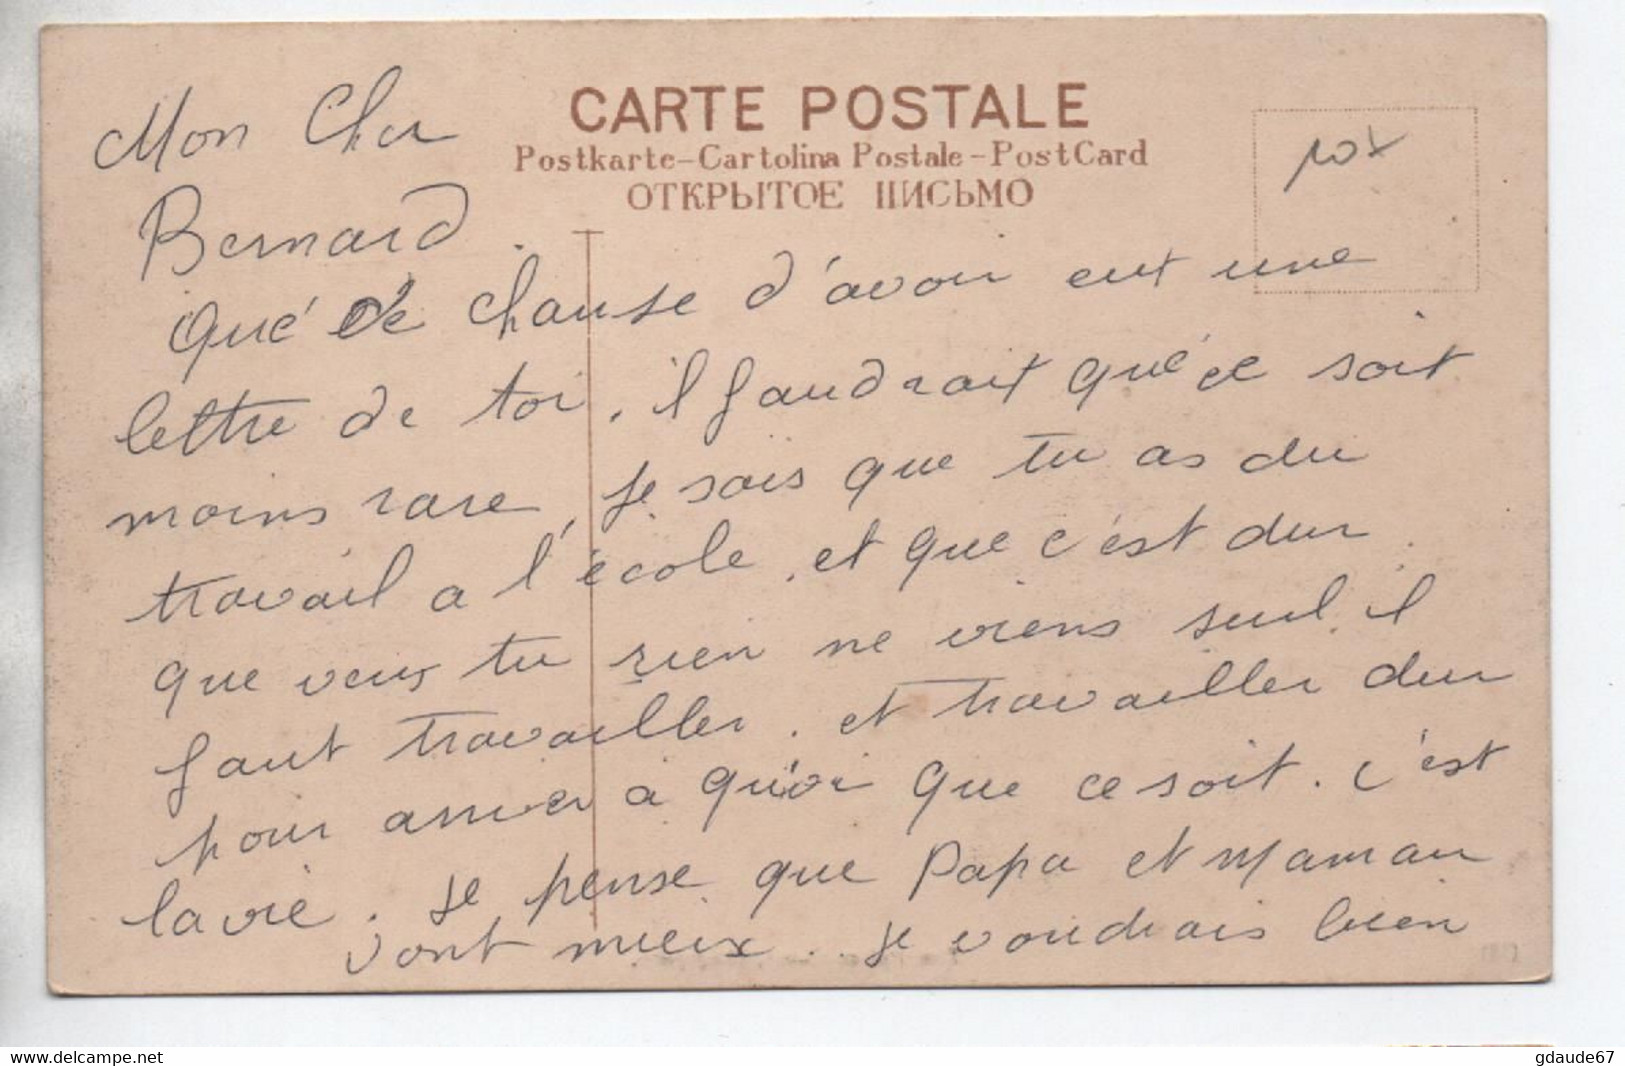 CARTE POSTALE
Postkarte-Cartolina Postale-PostCard
ОТКРЫТОЕ ПИСЬМО
Mon Cher
Bernard.
Qué de chanse d'avoir eut une
lettre de toi. il faudrait qué ce soit
moins rare, je sais que tu as du
travail a l'école. et que c'est dur.
que veux tu rien ne viens seul. il
faut travailler. et travailler dur
pour arriver à qu'oi que ce soit. c'est
la vie. je pense que Papa et Maman
vont mieux.. je voudrais bien
delcampe.net
gdaude67